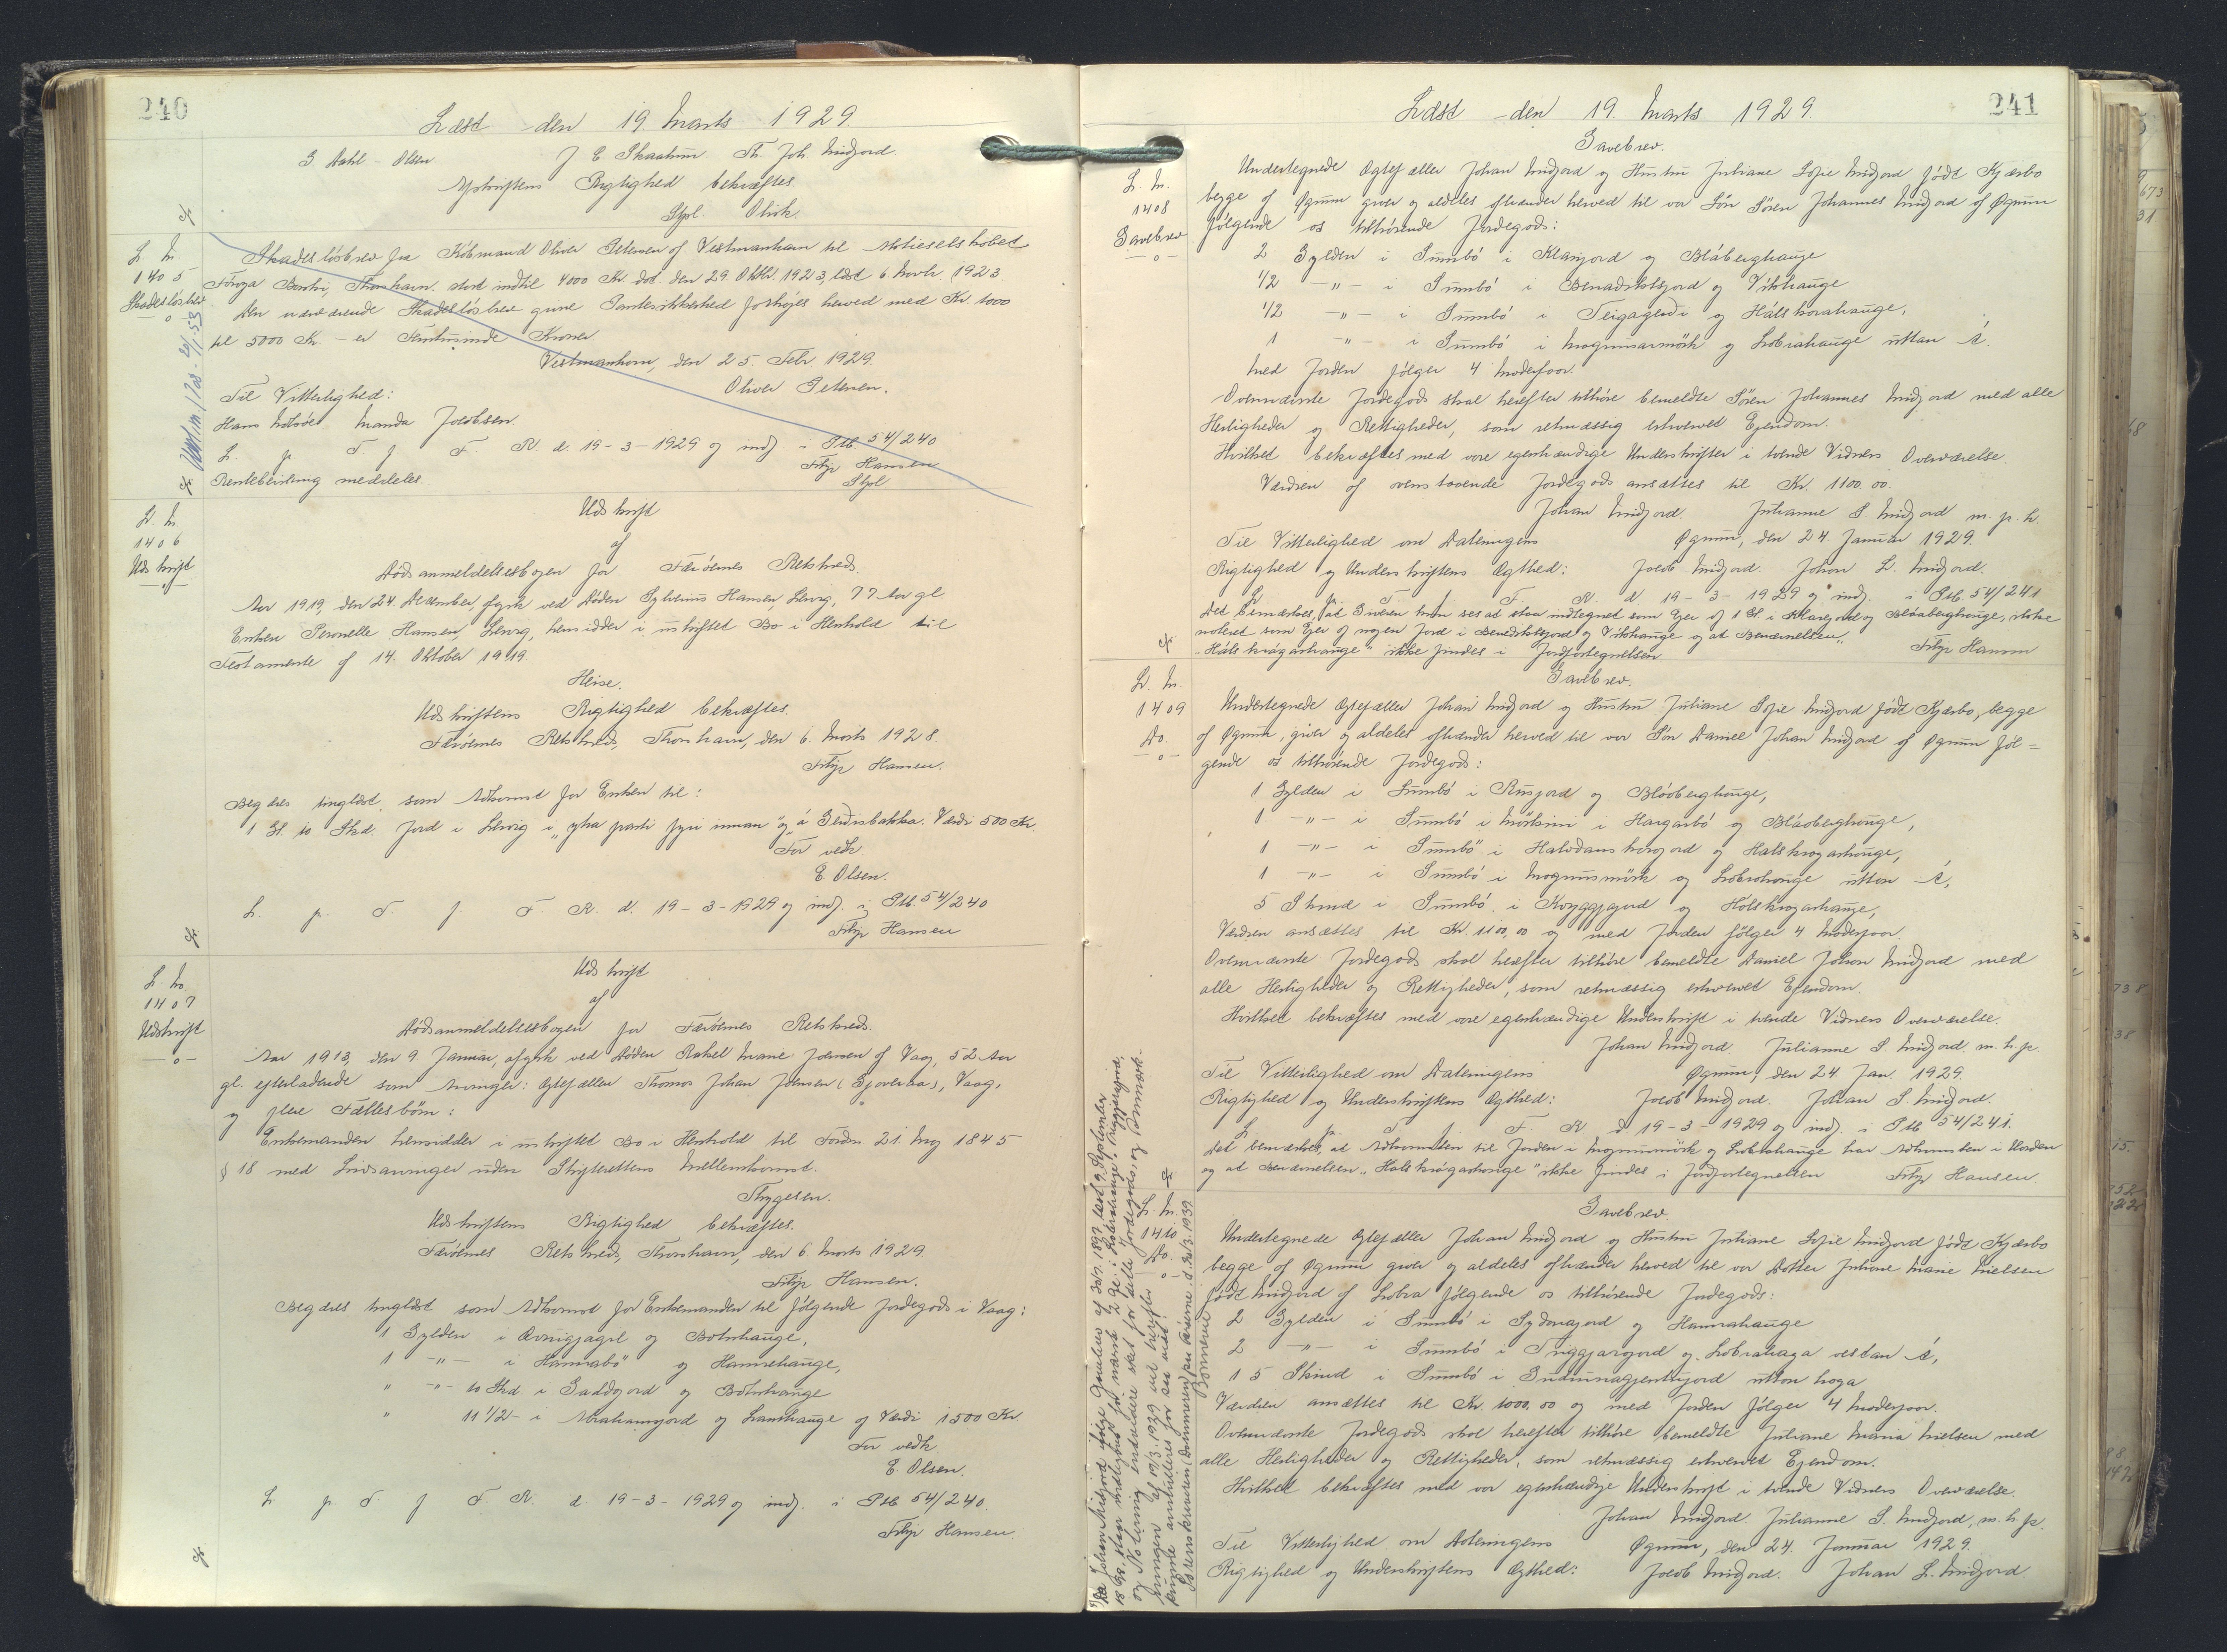 240
Læst den 19. Marts 1929.
G. Dahl-Olsen J E Skaalum Th. Joh. Midjord.
Afskriftens Rigtighed bekræftes
Stpl. Olrik.
L. Nr.
1405
Skadesløsbrev
Skadesløsbrev fra Købmand Oliver Petersen af Vestmanhavn til Aktieselskabet
Føroya Banki, Thorshavn, stort indtil 4000 Kr. dat. den 29. Oktbr. 1923, læst 6 Novbr. 1923.
Den nærværende Skadesløsbrev givne Pantesikkerhed forhøjes herved med Kr. 1000
til 5000 Kr. - er Femtusinde Kroner
Vestmanhavn, den 25. Febr 1929.
Til Vitterlighed: Oliver Petersen.
Hans Manda Jacobsen.
L. p. T f F. R. d. 19-3-1929 og indf. i Ptb 54/240
Filip Hansen
Rentebevisning meddeles. Stpl
L. Nr.
1406
Udskrift
Udskrift
af
Dødsanmeldelsesbogen for Færøernes Retskreds.
Aar 1919, den 24. December, afgik ved Døden Sylverius Hansen, Lervig, 77 Aar gl.
Enken Peronelle Hansen, Lervig, hensidder i uskiftet Bo i Henhold til
Testamente af 14. Oktober 1919.
Heise.
Udskriftens Rigtighed bekræftes.
Færøernes Retskreds, Thorshavn, den 6. Marts 1928.
Filip Hansen.
Begæres tinglæst som Adkomst for Enken til:
1 Gl. 10 Skd. Jord i Lervig i "ytra parti fyri innan" og "á Gerdisbakka. Værdi 500 Kr
For vedk.
E Olsen.
L. p. T. f. F. R. d. 19-3-1929 og indf. i Ptb. 54/240
Filip Hansen
L. Nr.
1407
Udskrift
Udskrift
af
Dødsanmeldelsesbogen for Færøernes Retskreds.
Aar 1913, den 9. Januar, afgik ved Døden Rakel Marie Joensen af Vaag, 52 Aar
gl. efterladende som Arvinger: Ægtefællen Thomas Johan Joensen Vaag,
og flere Fællesbørn:
Enkemanden hensidder i uskiftet Bo i Henhold til Fordn 21. Maj 1845
§ 18 med Livsarvinger uden Skifterettens Mellemkomst.
Thygesen.
Udskriftens Rigtighed bekræftes.
Færøernes Retskreds, Thorshavn, den 6. Marts 1929
Filip Hansen.
Begæres tinglæst som Adkomst for Enkemanden til følgende Jordegods i Vaag:
1 Gylden i og Botnhauge,
1 -"- i Hannabø og Hannehauge,
" -"- 10 Skd. i Gaddgjord og Botnhauge
" 11 1/2 - i Abrahamsjord og og Værdi 1500 Kr.
For vedk.
E. Olsen.
L. p. T. f F. R. d. 19-3-1929 og indf. i Ptb 54/240.
Filip Hansen.
241
Læst den 19. Marts 1929.
L. Nr.
1408
Gavebrev
Gavebrev.
Undertegnede Ægtefæller Johan Midjord og Hustru Juliane Sofie Midjord født Kjærbo
begge af Øgrum giver og aldeles afhænder herved til vor Søn Søren Johannes Midjord af Øgrum
følgende os tilhørende Jordegods:
2 Gylden i Sumbö i Klarjord og Bláberghauge
1/2 -"- i Sumbö i Benadiktsjord og Vikhauge
1/2 -"- i Sumbö i Teigagerdi og Hálskorahauge,
1 -"- i Sumbö i Magnusarmörk og Lobrahauge uttan Á.
Med Jorden følger 4 Moderfaar.
Ovennævnte Jordegods skal herefter tilhøre bemeldte Søren Johannes Midjord med alle
Herligheder og Rettigheder, som retmæssig erhvervet Ejendom.
Hvilket bekræftes med vore egenhændige Underskrifter i tvende Vidners Overværelse.
Værdien af ovenstaaende Jordegods ansættes til Kr. 1100.00.
Johan Midjord. Julianne S. Midjord m. p. h.
Til Vitterlighed om Dateringens Øgrum, den 24. Januar 1929.
Rigtighed og Underskriftens Ægthed: Jacob Midjord. Johan L. Midjord.
L. p. T. f. F. R. d 19-3-1929 og indf. i Ptb. 54/241
Det bemærkes, at Giveren kun ses at staa indtegnet som Ejer af 1 Gl. i Klarejord og Bláaberghauge, ikke
noteret som Ejer af nogen Jord i Benediktsjord og Vikhauge og at Benævnelsen
"Hálskrágarhauge" ikke findes i Jordfortegnelsen. Filip Hansen
L. Nr.
1409
Do.
Gavebrev.
Undertegnede Ægtefæller Johan Midjord og Hustru Juliane Sofie Midjord født Kjærbo, begge
af Øgrum, giver og aldeles afhænder herved til vor Søn Daniel Johan Midjord af Øgrum føl-
gende os tilhørende Jordegods:
1 Gylden i Sumbö i Rusjord og Bláaberghauge,
1 -"- i Sumbö i Mørkini i Hargarbö og Bláaberghauge,
1 -"- i Sumbö i og Halskragarhauge,
1 -"- i Sumbö i Magnusmörk og Lobrahauge uttan Á,
5 Skind i Sumbö i Kryggjagerd og Hálskragarhauge,
Værdien ansættes til Kr. 1100,00 og med Jorden følger 4 Moderfaar.
Ovennævnte Jordegods skal herefter tilhøre bemeldte Daniel Johan Midjord med
alle Herligheder og Rettigheder, som retmæssig erhvervet Ejendom.
Hvilket bekræftes med vore egenhændige Underskrift i tvende Vidners Overværelse.
Johan Midjord. Julianne S. Midjord. m. h. p.
Til Vitterlighed om Dateringens Øgrum, den 24. Jan. 1929.
Rigtighed og Underskriftens Ægthed: Jacob Midjord. Johan S. Midjord.
L. p. T. f. F R d 19-3-1929 og indf. i Ptb 54/241.
Det bemærkes, at Adkomsten til Jorden i Magnusmörk og Lobrahauge har Adkomsten i Orden
og at Benævnelsen "Halskrágarhauge" ikke findes i Jordfortegnelsen Filip Hansen.
L. Nr.
1410
Do.
Gavebrev.
Undertegnede Ægtefæller Johan Midjord og Hustru Juliane Sofie Midjord født Kjærbo
begge af Øgrum giver og aldeles afhænder herved til vor Datter Juliane Marie Nielsen
født Midjord af Lobra følgende os tilhørende Jordegods:
2 Gylden i Sumbö i Sydragjord og Hannahauge
2 -"- i Sumbö i Triggjargjord og Lobrahaga vestan Á,
15 Skind i Sumbö i uttan haga
Værdien ansættes til Kr. 1000,00 og med Jorden følger 4 Moderfaar.
Ovennævnte Jordegods skal herefter tilhøre bemeldte Juliane Maria Nielsen med
alle Herligheder og Rettigheder, som retmæssig erhvervet Ejendom.
Hvilket bekræftes med vor egenhændige Underskrift i tvende Vidners Overværelse.
Johan Midjord. Julianne S. Midjord, m. h. p.
Til Vitterlighed om Dateringens Øgrum, den 24. Januar 1929.
Rigtighed og Underskriftens Ægthed: Jacob Midjord. Johan L. Midjord